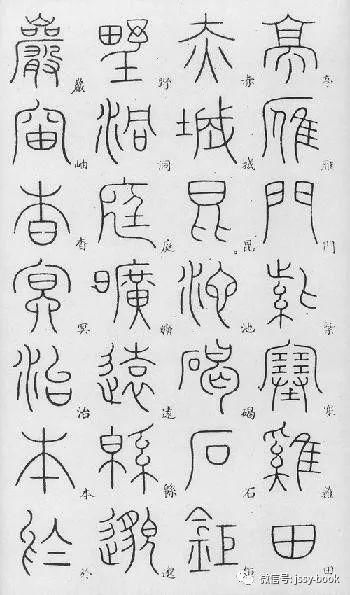 亭雁門紫塞雞田
赤城昆池碣石鉅
野洞庭曠遠緜邈
巖岫杳冥治本於
微信号: jssy-book